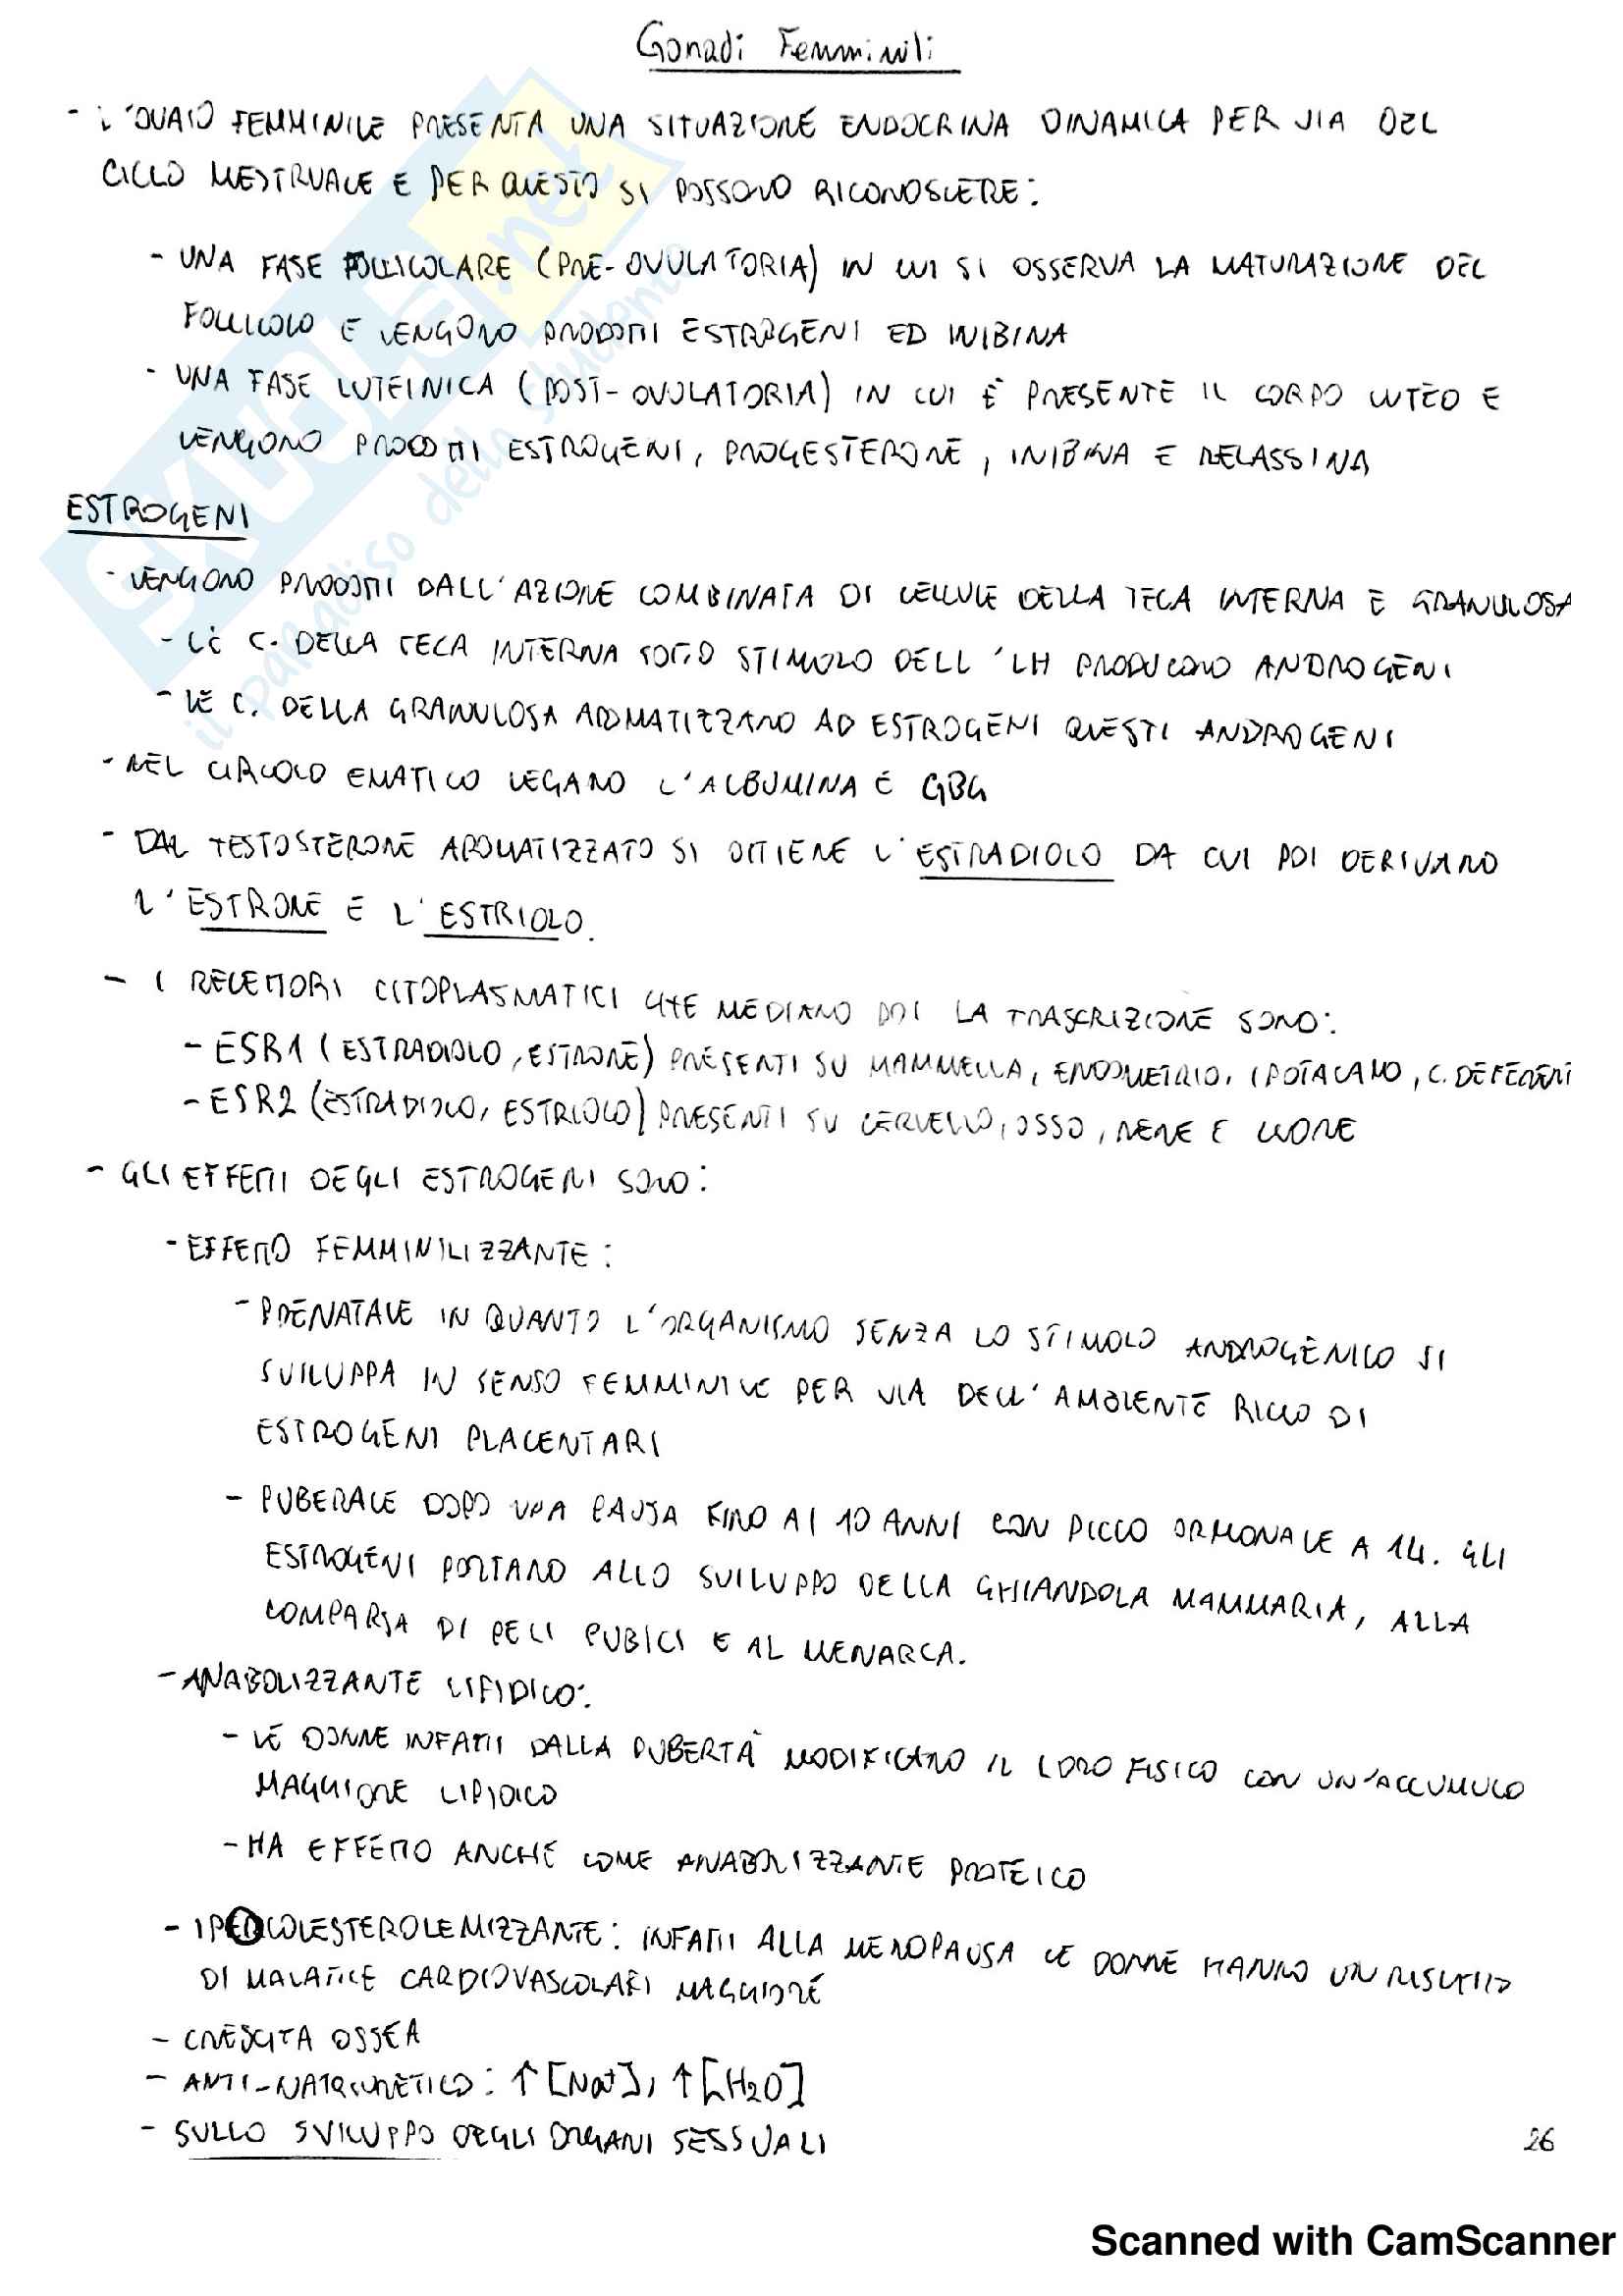 Gonadi Femminili
- L'OVAIO FEMMINILE PRESENTA UNA SITUAZIONE ENDOCRINA DINAMICA PER VIA DEL
CICLO MESTRUALE E PER QUESTO SI POSSONO RICONOSCERE:
- UNA FASE FOLLICOLARE (PRE-OVULATORIA) IN CUI SI OSSERVA LA MATURAZIONE DEL
FOLLICOLO E VENGONO PRODOTTI ESTROGENI ED INIBINA
- UNA FASE LUTEINICA (POST-OVULATORIA) IN CUI È PRESENTE IL CORPO LUTEO E
VENGONO PRODOTTI ESTROGENI, PROGESTERONE, INIBINA E RELASSINA
ESTROGENI
- VENGONO PRODOTTI DALL'AZIONE COMBINATA DI CELLULE DELLA TECA INTERNA E GRANULOSA
- LE C. DELLA TECA INTERNA SOTTO STIMOLO DELL'LH PRODUCONO ANDROGENI
- LE C. DELLA GRANULOSA AROMATIZZANO AD ESTROGENI QUESTI ANDROGENI
- NEL CIRCOLO EMATICO LEGANO L'ALBUMINA E GBG
- DAL TESTOSTERONE AROMATIZZATO SI OTTIENE L'ESTRADIOLO DA CUI POI DERIVANO
L'ESTRONE E L'ESTRIOLO.
- I RECETTORI CITOPLASMATICI CHE MEDIANO POI LA TRASCRIZIONE SONO:
- ESR1 (ESTRADIOLO, ESTRONE) PRESENTI SU MAMMELLA, ENDOMETRIO, IPOTALAMO, C. DEFERENTI
- ESR2 (ESTRADIOLO, ESTRIOLO) PRESENTI SU CERVELLO, OSSO, RENE E CUORE
- GLI EFFETTI DEGLI ESTROGENI SONO:
- EFFETTO FEMMINILIZZANTE:
- PRENATALE IN QUANTO L'ORGANISMO SENZA LO STIMOLO ANDROGENICO SI
SVILUPPA IN SENSO FEMMINILE PER VIA DELL'AMBIENTE RICCO DI
ESTROGENI PLACENTARI
- PUBERALE DOPO UNA PAUSA FINO AI 10 ANNI CON PICCO ORMONALE A 14. GLI
ESTROGENI PORTANO ALLO SVILUPPO DELLA GHIANDOLA MAMMARIA, ALLA
COMPARSA DI PELI PUBICI E AL MENARCA.
- ANABOLIZZANTE LIPIDICO:
- LE DONNE INFATTI DALLA PUBERTÀ MODIFICANO IL LORO FISICO CON UN'ACCUMULO
MAGGIORE LIPIDICO
- HA EFFETTO ANCHE COME ANABOLIZZANTE PROTEICO
- IPOCOLESTEROLEMIZZANTE: INFATTI ALLA MENOPAUSA LE DONNE HANNO UN RISCHIO
DI MALATTIE CARDIOVASCOLARI MAGGIORE
- CRESCITA OSSEA
- ANTI-NATRIURETICO: ↑[Na+], ↑[H2O]
- SULLO SVILUPPO DEGLI ORGANI SESSUALI
26
SKUOLA.net
il paradiso dello studente
Scanned with CamScanner